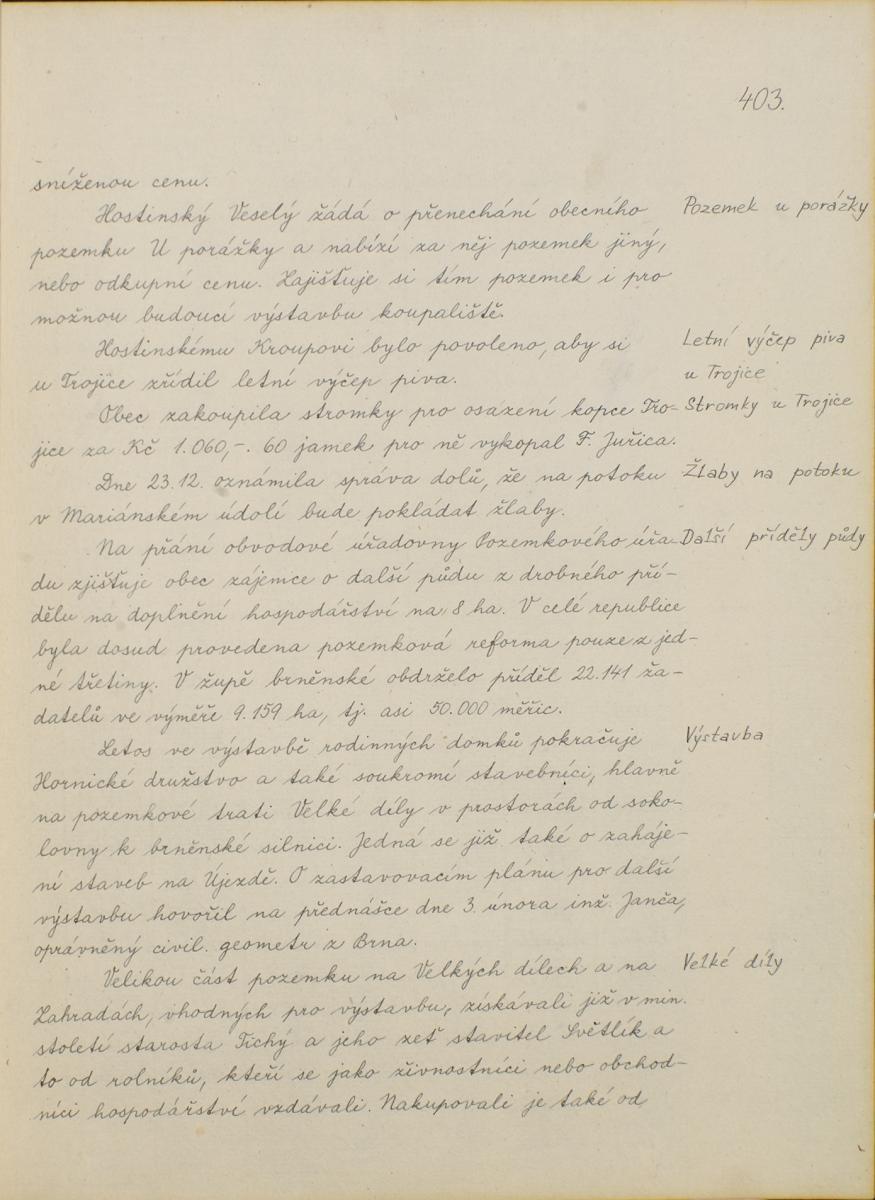 403.
sníženou cenu.
Hostinský Veselý žádá o přenechání obecního
Pozemek u porážky
pozemku U porážky a nabízí za něj pozemek jiný,
nebo odkupní cenu. Zajišťuje si tím pozemek i pro
možnou budoucí výstavbu koupaliště.
Hostinskému Kroupovi bylo povoleno, aby si
Letní výčep piva
u Trojice zřídil letní výčep piva.
u Trojice
Obec zakoupila stromky pro osázení kopce Tro-
Stromky u Trojice
jice za Kč 1.060,-. 60 jamek pro ně vykopal F. Juřica.
Dne 23.12. oznámila správa dolů, že na potoku
Žlaby na potoku
v Mariánském údolí bude pokládat žlaby.
Na přání obvodové úřadovny Pozemkového úřa-
Další příděly půdy
du zjišťuje obec zájemce o další půdu z drobného pří-
dělu na doplnění hospodářství na 8 ha. V celé republice
byla dosud provedena pozemková reforma pouze z jed-
né třetiny. V župě brněnské obdrželo příděl 22.141 ža-
datelů ve výměře 9.159 ha, tj. asi 50.000 měřic.
Letos ve výstavbě rodinných domků pokračuje
Výstavba
Hornické družstvo a také soukromí stavebníci, hlavně
na pozemkové trati Velké díly v prostorách od soko-
lovny k brněnské silnici. Jedná se již také o zaháje-
ní staveb na Újezdě. O zastavovacím plánu pro další
výstavbu hovořil na přednášce dne 3. února inž. Janča,
oprávněný civil. geometr z Brna.
Velikou část pozemku na Velkých dílech a na
Velké díly
Zahradách, vhodných pro výstavbu, získávali již v min.
století starosta Tichý a jeho zeť stavitel Světlík a
to od rolníků, kteří se jako živnostníci nebo obchod-
níci hospodářství vzdávali. Nakupovali je také od